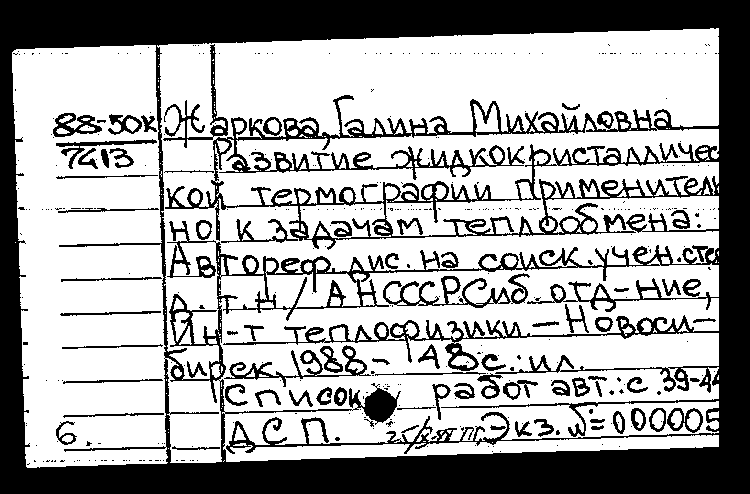 88-50к Жаркова, Галина Михайловна
7413 Развитие жидкокристалличес
кой термографии применитель
но к задачам теплообмена:
Автореф. дис. на соиск. учен. сте
д. т. н. / АН СССР. Сиб. отд-ние,
Ин-т теплофизики. — Новоси-
бирск, 1988. - 48 с.: ил.
Список работ авт.: с. 39-44
6. ДСП. Экз. № = 000005